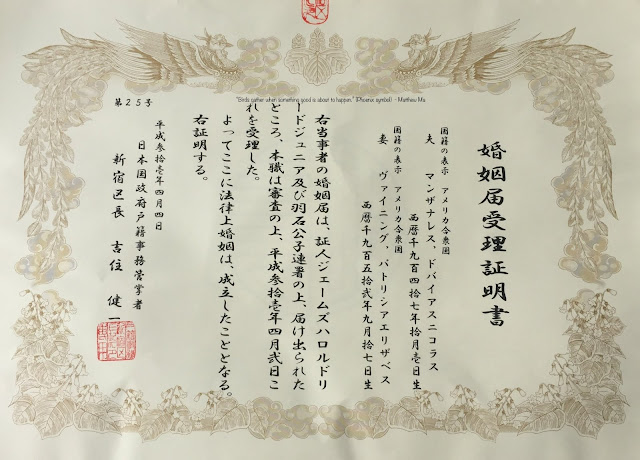 "Birds gather when something good is about to happen." (Phoenix symbol) - Matthew Ma
婚姻届受理証明書
国籍の表示 アメリカ合衆国
夫 マンザナレス、ドバイアスニコラス
西暦千九百四拾七年拾月壱日生
国籍の表示 アメリカ合衆国
妻 ヴァイニング、パトリシアエリザベス
西暦千九百五拾弐年九月拾七日生
右当事者の婚姻届は、証人ジェームズハロルドリ
ードジュニア及び羽石公子連署の上、届け出られた
ところ、本職は審査の上、平成参拾壱年四月弐日こ
れを受理した。
よってここに法律上婚姻は、成立したこととなる。
右証明する。
第25号
平成参拾壱年四月四日
日本国政府戸籍事務管掌者
新宿区長 吉住 健一